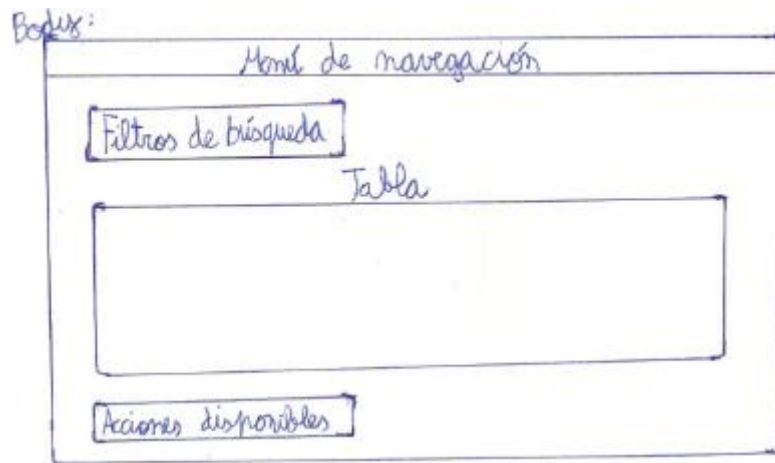 Body:
Menú de navegación
Filtros de búsqueda
Tabla
Acciones disponibles